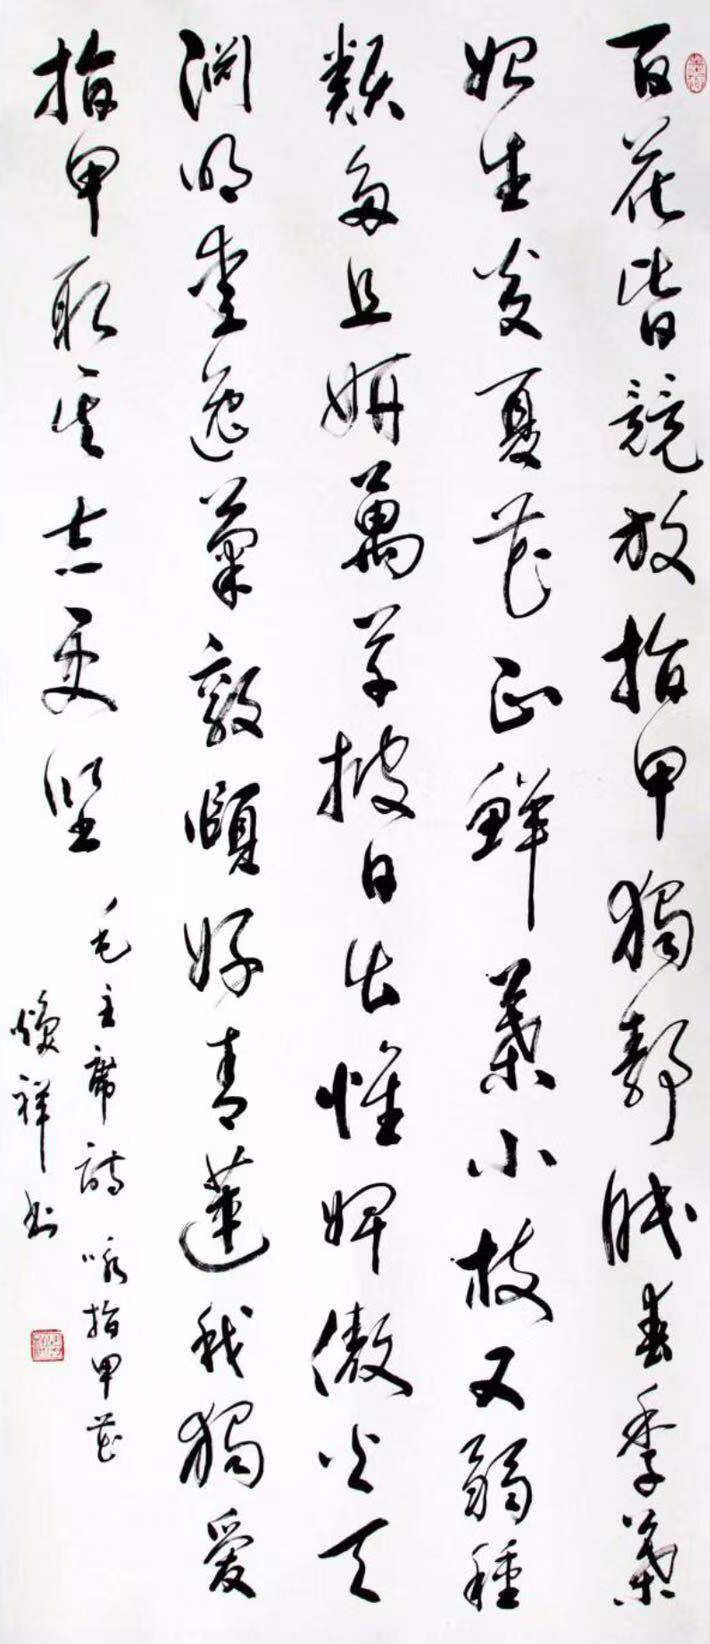 百花皆競放指甲獨靜眠春季葉
始生炎夏花正鮮葉小枝又弱種
類多且妍萬草披日出惟婢傲火天
淵明愛逸菊敦頤好青蓮我獨愛
指甲取其志更堅
毛主席詩 咏指甲花
煥祥书